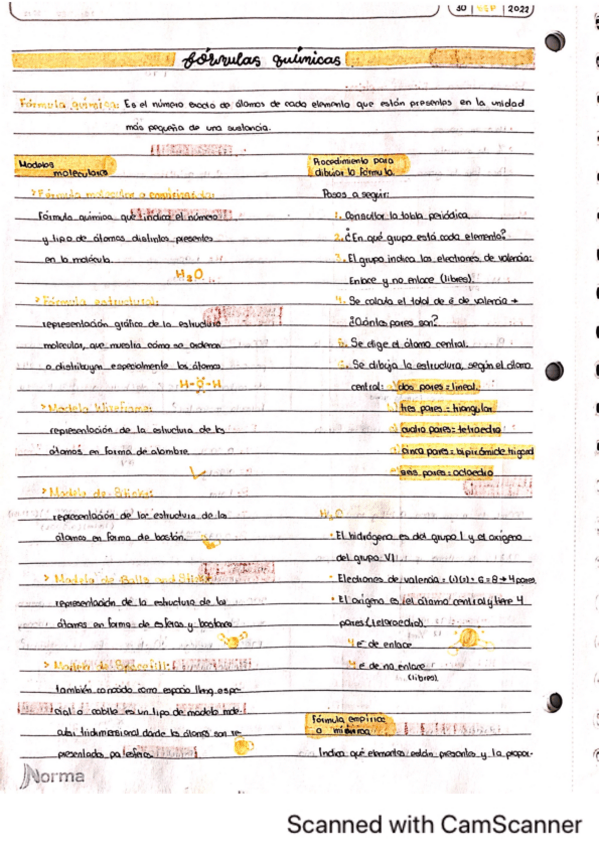 30 SEP 2022
fórmulas químicas
Fórmula química: Es el número exacto de átomos de cada elemento que están presentes en la unidad
más pequeña de una sustancia.
Modelos
moleculares
> Fórmula molecular o condensada:
Fórmula química que indica el número
y tipo de átomos distintos presentes
en la molécula.
H2O
> Fórmula estructural:
representación gráfica de la estructura
molecular, que muestra cómo se ordenan
o distribuyen espacialmente los átomos.
H-O-H
> Modelo Wireframe:
representación de la estructura de los
átomos en forma de alambre.
> Modelo de Sticks:
representación de la estructura de los
átomos en forma de bastón.
> Modelo de Balls and Sticks
representación de la estructura de los
átomos en forma de esferas y bastones
> Modelo de Spacefill:
también conocido como espacio lleno espa-
cial o es un tipo de modelo mole-
cular tridimensional donde los átomos son re-
presentados por esferas
Procedimiento para
dibujar la fórmula.
Pasos a seguir:
1. Consultar la tabla periódica
2. ¿En qué grupo está cada elemento?
3. El grupo indica los electrones de valencia:
Enlace y no enlace (libres)
4. Se calcula el total de é de valencia →
¿Cuántos pares son?
5. Se elige el átomo central.
6. Se dibuja la estructura, según el átomo
central: dos pares = lineal.
tres pares = triangular
cuatro pares = tetraedro
cinco pares = bipirámide trigonal
seis pares = octaedro
H2O
• El hidrógeno es del grupo I y el oxígeno
del grupo VI:
• Electrones de valencia = (1)(2) + 6 = 8 → 4 pares
• El oxígeno es el átomo central y tiene 4
pares (tetraedro).
4 é de enlace
4 é de no enlace
(libres)
fórmula empírica
o mínima
Indica qué elementos están presentes y la propor-
Norma
Scanned with CamScanner